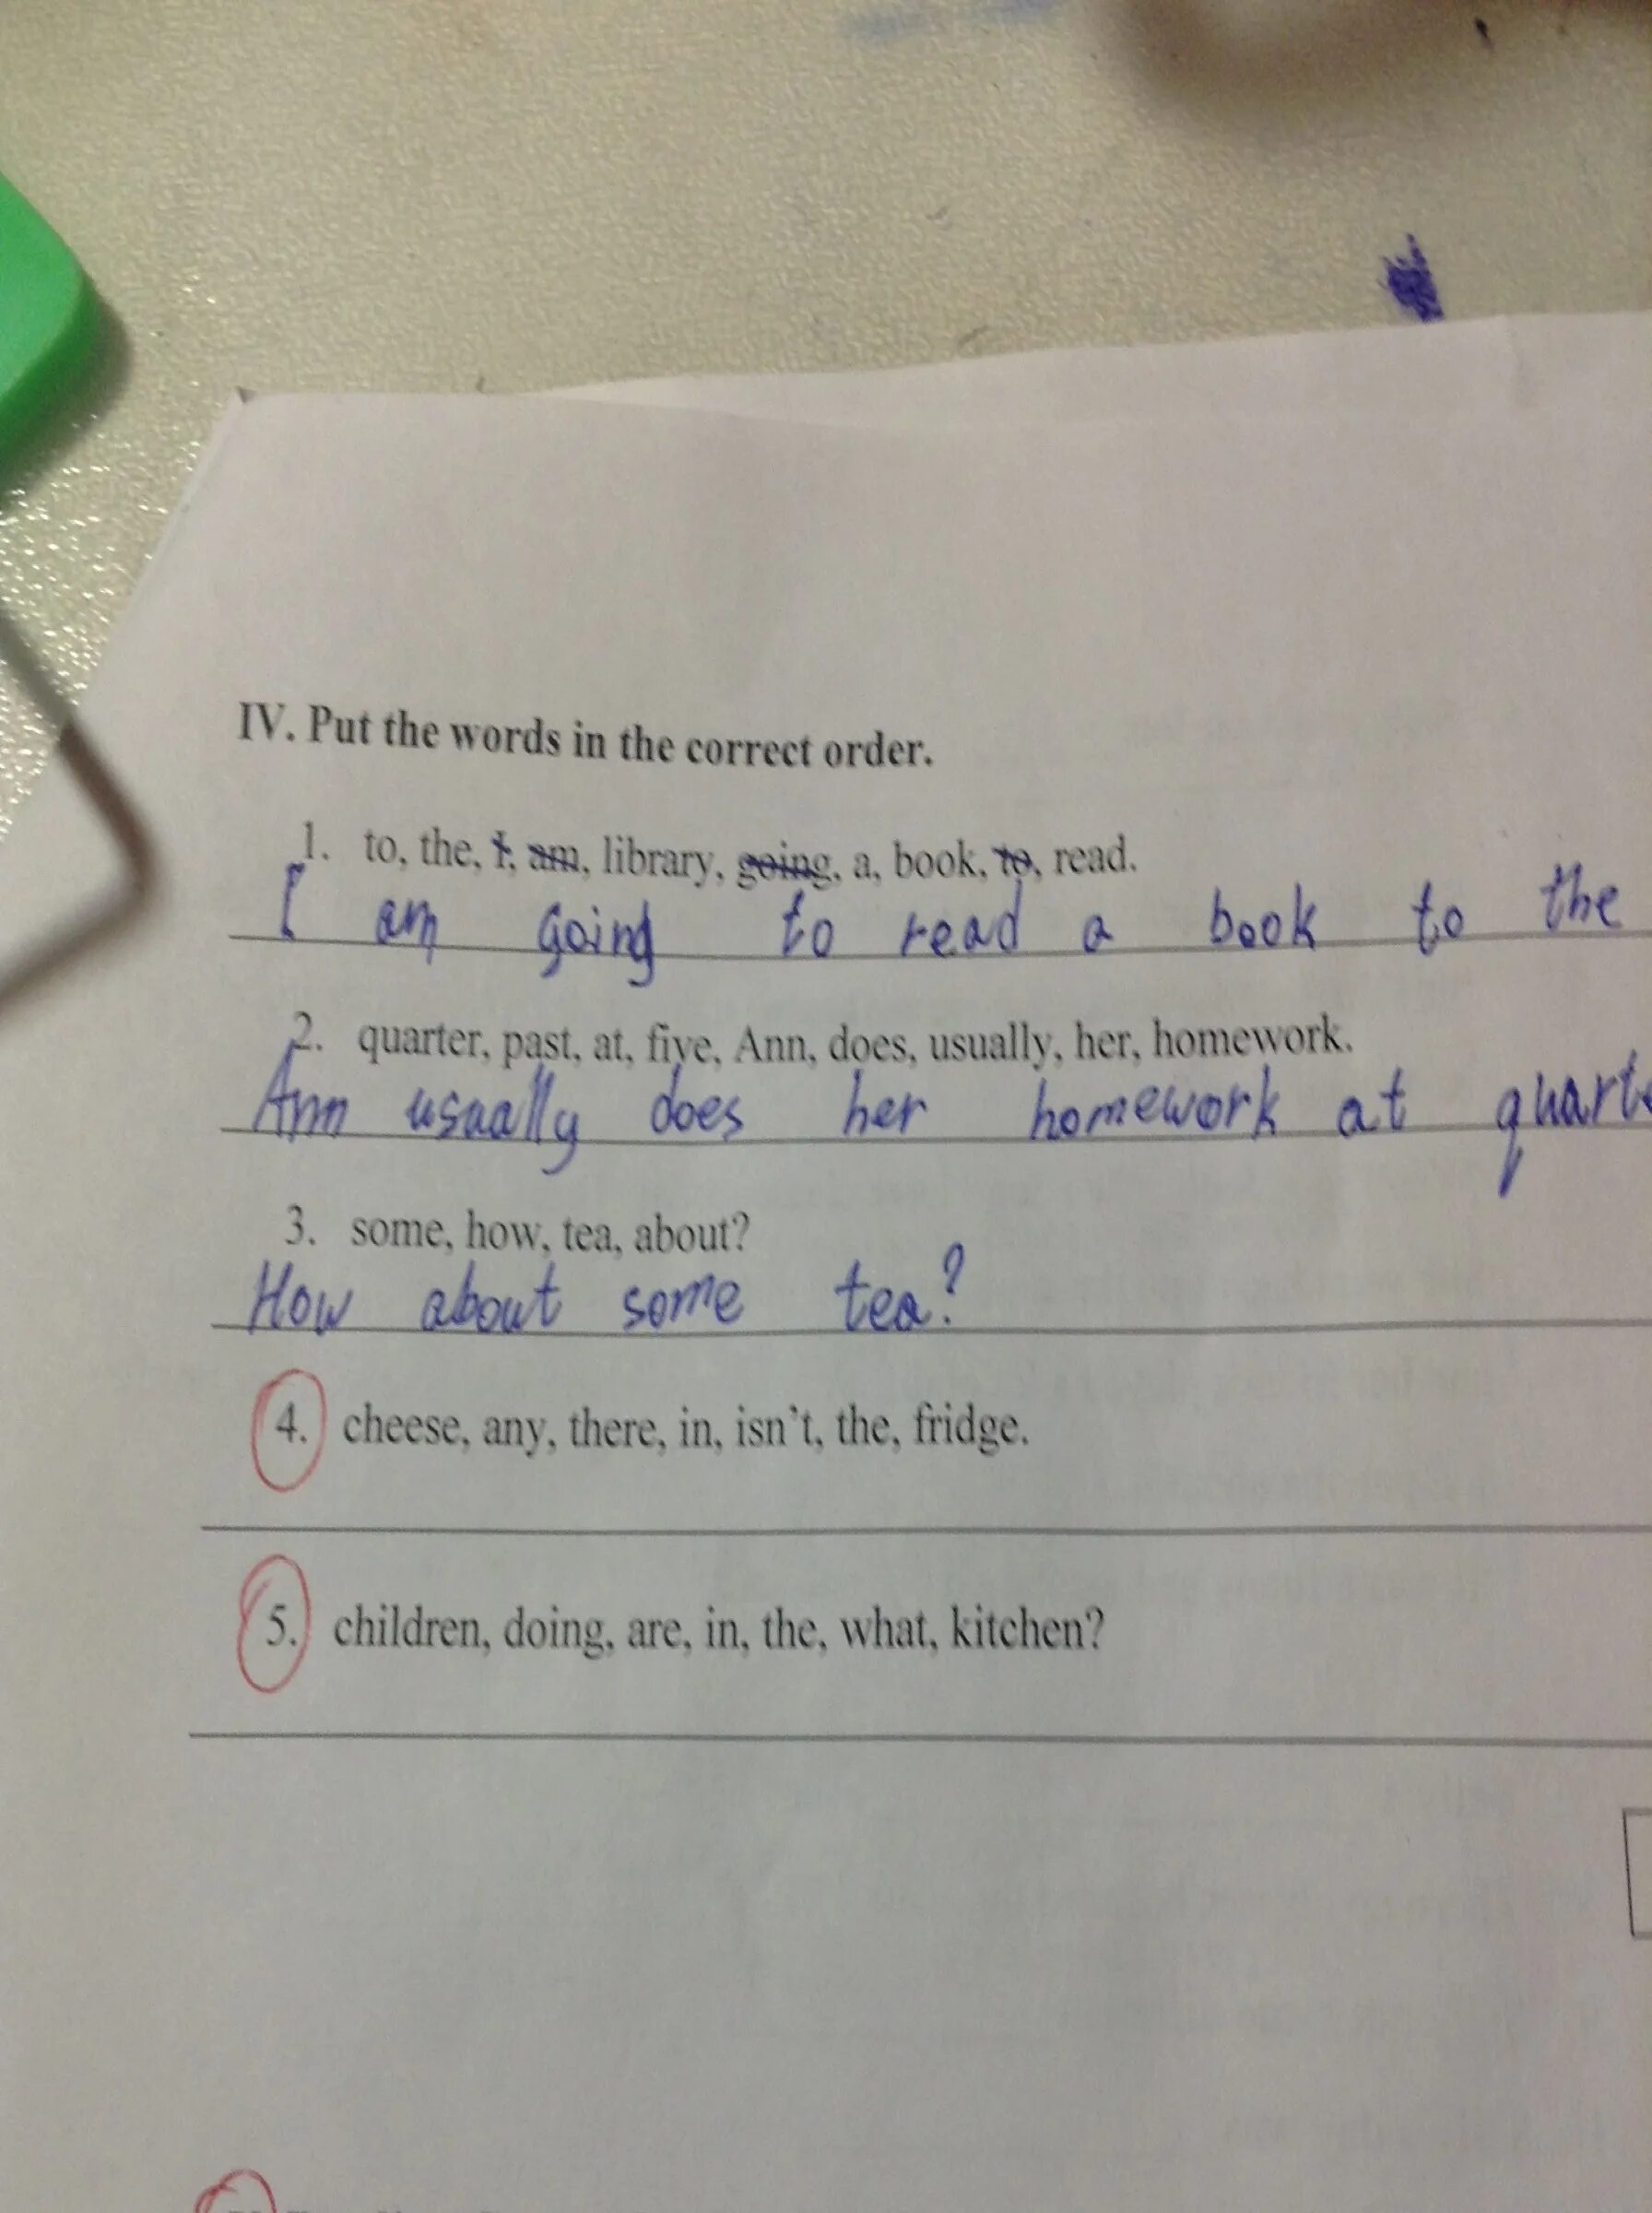 IV. Put the words in the correct order.
1. to, the, I, am, library, going, a, book, to, read.
I am going to read a book to the
2. quarter, past, at, five, Ann, does, usually, her, homework.
Ann usually does her homework at quarte
3. some, how, tea, about?
How about some tea?
4. cheese, any, there, in, isn't, the, fridge.
5. children, doing, are, in, the, what, kitchen?